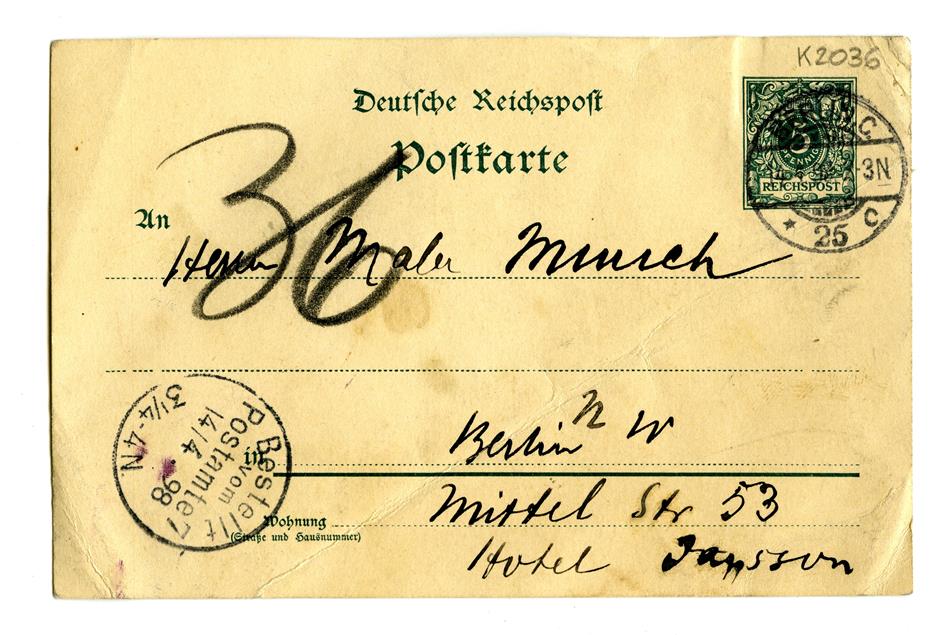 K2036
Deutsche Reichspost
Postkarte
5
PFENNIG
REICHSPOST
C
-3N
* 25 c
36
An
Herrn Maler Munsch
Berlin N W
in
Mittel Str 53
Wohnung
(Straße und Hausnummer)
Hotel Janssson
Bestellt
vom
Postamte 7
14/4. 98
3¼-4N.